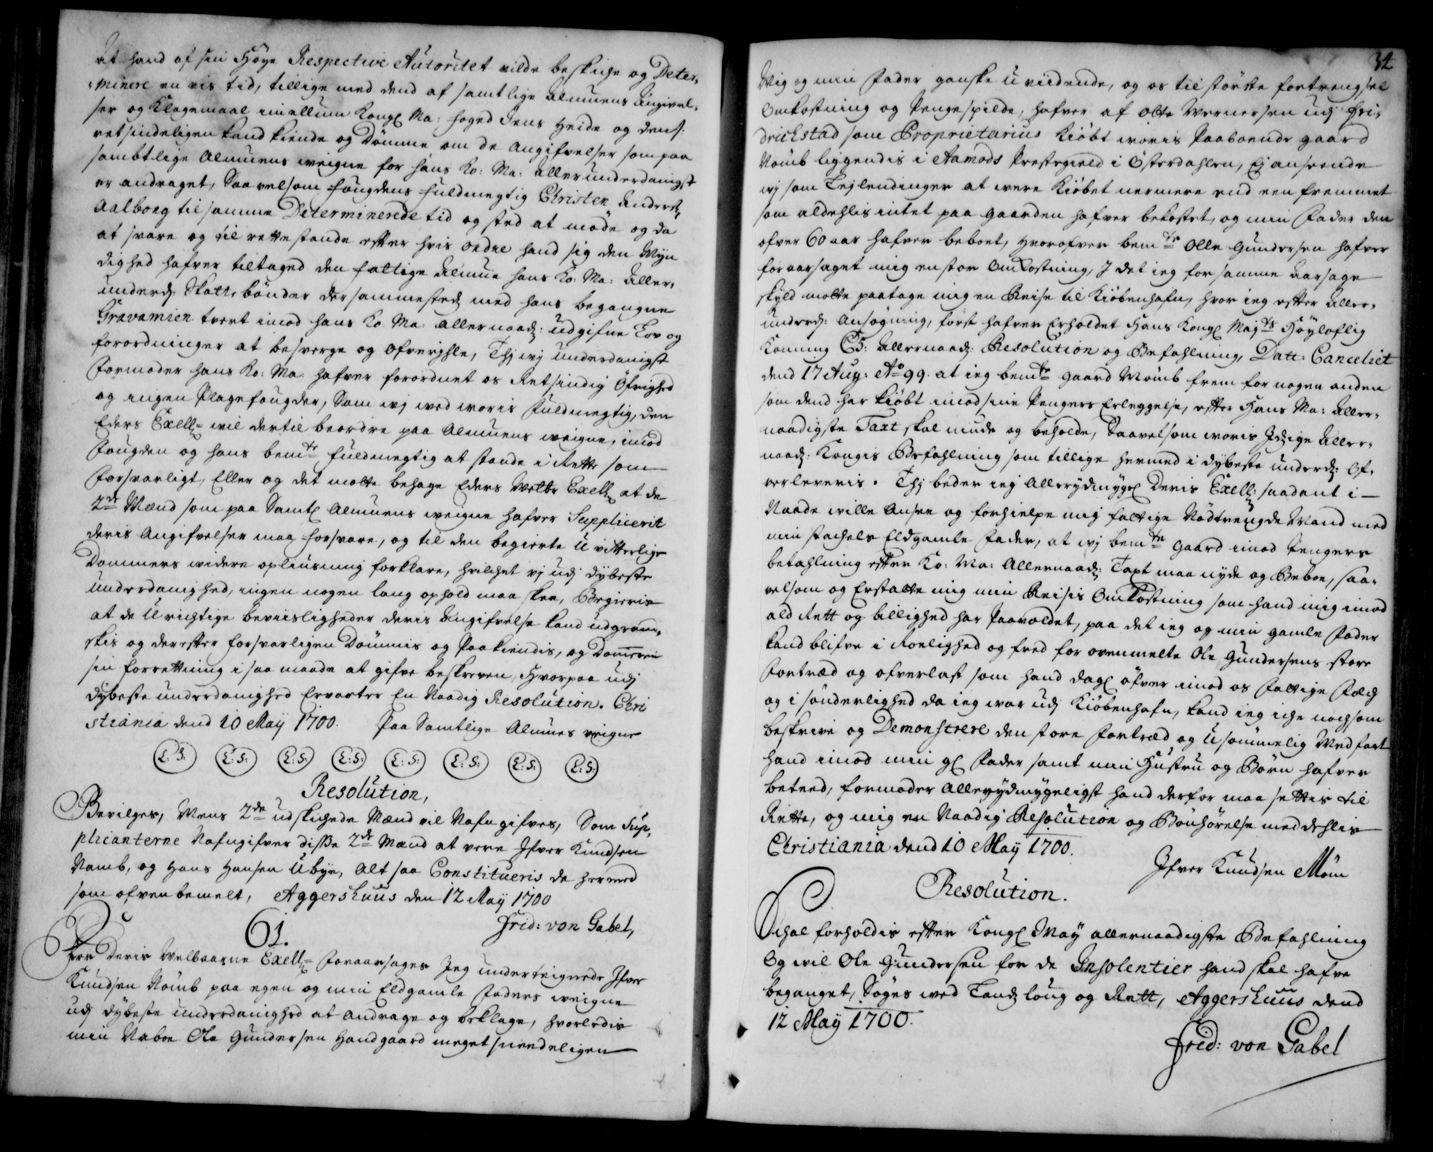 at hand af sin Høye Respective Autoritet vilde beskiche og Deter-
minere en vis tid, tillige med dend af samtlige almuens Angivel-
ser og Klagemaal imellum Kongl Ma: foged Jens Heide og dend:
retsindeligen kand kiende og Dømme om de Angifvelser som paa
sambtlige Almuens weigne for hans Ko: Ma: allerunderdanigst
er andraget, Saa velsom fougdens fuldmegtig Christen Anders:
Aalborg til samme Determinerede tid og sted at møde og da
at svare og til rettestande efter hvis ordre hand sig den Myn
dighed hafver tiltaged den fattige Almue hans Ko: Ma: aller-
underd: Skatt bønder dersammested med hans begangne
Gravamien tvert imod hans Ko: Ma: allernaad: udgifne Lov og
forordninger at besverge og ofverjhle, Thj wj underdanigst
formoder hans Ko: Ma: hafver forordnet os Retsindig Øfrighed
og ingen Plagefougder, Som wj ved woris fuldmegtig, den
Eders Exell: vil dertil beordre paa Almuens weigne, imod
fougden og hans bemte fuldmegtig at stande i Rette som
forsvarligt, Eller og det motte behage Eders Exell: at de
2de Mænd som paa Samtl Almuens weigne hafver Supplicerit
deris Angifvelser maa forsvare, og til den begierte Uvitterlige
Dommers widere opliusning forklare, hvilchet vj udj dybeste
underdanighed, ingen nogen lang ophold maa skee, Begierer
at de Urichtige beviisligheder deris Angifvelse kand udgran-
skis og derefter forsvarligen Dømmis og Paakiendis, og Dommeren
sin forretning i saa maade at gifve beskreven, Hvorpaa udj
dybeste underdanighed Erwarter En Naadig Resolution. Chri
stiania dend 10 May 1700. Paa Samtlige Almues weigne
L:S: L:S: L:S: L:S: L:S: L:S: L:S: L:S:
Resolution,
Bevilges, Mens 2de udskichede Mænd vil Nafngifves, Som Sup-
plicanterne Nafngifver disse 2de Mænd at vere Ifver Knudsen
Namb, og Hans Hansen Ubye, Alt saa Constitueris de hermed
som ofven bemelt, Aggershuus den 12 May 1700
Frid: von Gabel,
61.
For Deris Welbaarne Exell: foraarsages Jeg undertegnede Ifver
Knudsen Nømb paa egen og min Eldgamle faders weigne
udj dybeste underdanighed at andrage og beklage, hvorledis
min Naboe Ole Gundersen Handgaard meget sneedeligen
34
Mig og min fader ganske uvidende, og os til største fortrengsel
Omkostning og Pengespilde, hafver af Olle Wernersen udj Fri-
drichstad som Proprietarius kiøbt woris Paaboende gaard
Nømb liggendis i Aamods Prestegield i Østerdahlen, Ej ansende
wj som Tejlendinger at were Kiøbet nermere end een fremmet
som aldehlis intet paa gaarden hafver bekostet, og min fader den
ofver 60 aar hafver beboet, Hvorofver bemte Olle Gundersen hafver
foraarsaget mig en stor Omkostning, I det ieg for samme Aarsage
skyld motte paatage mig en Reise til Kiøbenhafn, hvor ieg efter aller-
underd: Ansøgning, først hafver Erholdet Hans Kongl Majts Høyloflig
Konning C5: allernaad: Resolution og Befahling, Datt: Canceliet
dend 17 Aug: Ao 99. at ieg bemte gaard Nømb frem for nogen anden
som dend har kiøbt imod sine Pengers Erleggelse, efter Hans Ma: aller-
naadigste Taxt skal niude og beholde, Saavelsom woris Idzige aller-
naad: Kongis Befahling som tillige hermed i dybeste underd: Of-
verleveris. Thj beder ieg Allerydmygl Deris Exell: saadant i
Naade wille Ansee og forhielpe mig fattige Nødtrengde Mand med
min stachels Eldgamle fader, at wj bemte gaard imod Pengers
betahling efter Ko: Ma: Allernaad: Taxt maa nyde og Beboe, saa-
velsom og Erstatte mig min Reisis Omkostning som hand mig imod
ald Rett og billighed har Paavoldet, paa det ieg og min gamle fader
kand blifve i Roelighed og fred for ovenmelte Ole Gundersens store
fortræd og ofverlast som hand dagl øfver imod os fattige folch
og i sønderlighed da ieg war udj Kiøbenhafn, kand ieg iche nochsom
beskrive og Demonstrere den store fortræd og Usømmelig Medfart
hand imod min gl fader samt min Hustru og Børn hafver
beteed, formoder Allerydmygeligst hand derfor maa settis til
Rette, og mig en Naadig Resolution og Bønhørelse meddehlis
Christiania dend 10 May 1700.
Ifver Knudsen Nøm
Resolution.
Schal forholdis efter Kongl May allernaadigste Befahling
Og vil Ole Gundersen for de Insolentier hand skal hafve
beganget, Søges ved Landz loug og Rett, Aggershuus dend
12 May 1700.
Frid: von Gabel